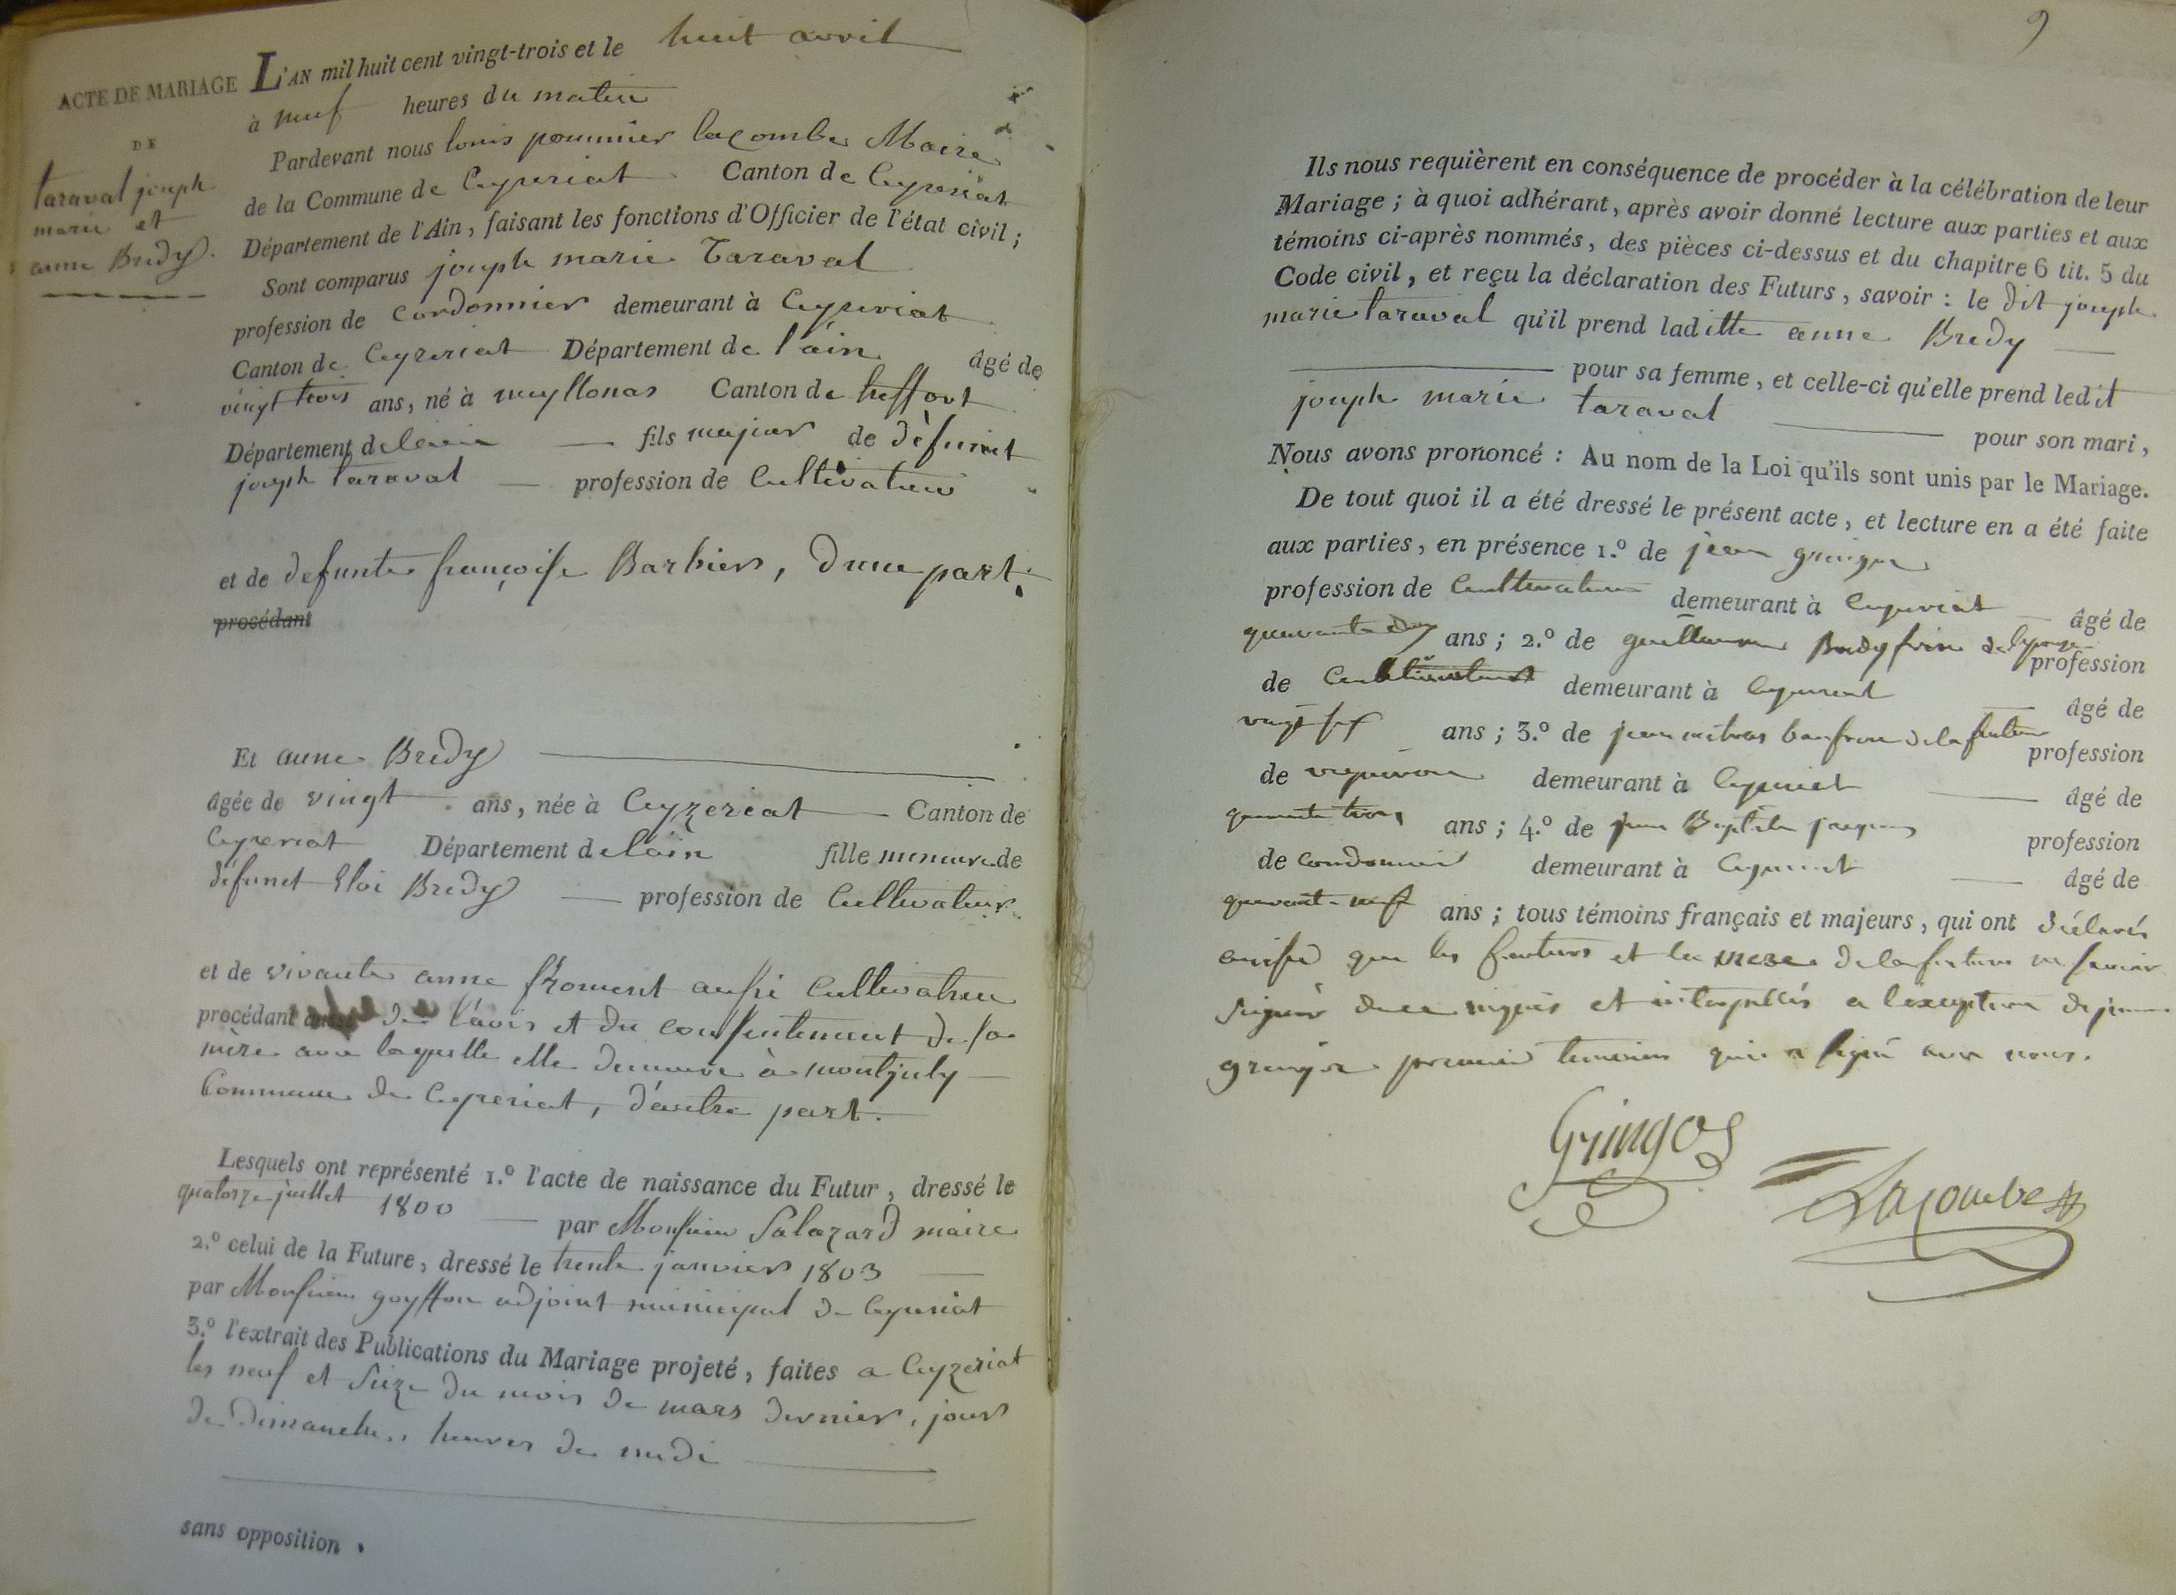 ACTE DE MARIAGE
DE
taraval joseph
marie et
anne Bredy.
L'AN mil huit cent vingt-trois et le huit avril
à neuf heures du matin
Pardevant nous louis pommier lacombe Maire
de la Commune de Ceyzeriat Canton de Ceyzeriat
Département de l'Ain, faisant les fonctions d'Officier de l'état civil ;
Sont comparus joseph marie Taraval
profession de Cordonnier demeurant à Ceyzeriat
Canton de Ceyzeriat Département de l'ain âgé de
vingt trois ans, né à meyllonas Canton de treffort
Département de lain fils majeur de défunt
joseph taraval profession de Cultivateur
et de defunte françoise Barbier, d'une part.
procédant
Et anne Bredy
âgée de vingt ans, née à Ceyzeriat Canton de
Ceyzeriat Département de lain fille mineure de
défunct Eloi Bredy profession de Cultivateur
et de vivante anne froment aussi Cultivatrice
procédant de l'avis et du consentement de sa
mère avec laquelle elle demeure à montjuly
Commune de Ceyzeriat, d'autre part.
Lesquels ont représenté 1.º l'acte de naissance du Futur, dressé le
quatorze juillet 1800 par Monsieur Salazard maire
2.º celui de la Future, dressé le trente janvier 1803
par Monsieur goyffon adjoint municipal de Ceyzeriat
3.º l'extrait des Publications du Mariage projeté, faites a Ceyzeriat
les neuf et Seize du mois de mars dernier, jours
de dimanche, heures de midi
sans opposition.
9
Ils nous requièrent en conséquence de procéder à la célébration de leur
Mariage ; à quoi adhérant, après avoir donné lecture aux parties et aux
témoins ci-après nommés, des pièces ci-dessus et du chapitre 6 tit. 5 du
Code civil, et reçu la déclaration des Futurs, savoir : le dit joseph
marie taraval qu'il prend laditte anne Bredy
pour sa femme, et celle-ci qu'elle prend ledit
joseph marie taraval pour son mari,
Nous avons prononcé : Au nom de la Loi qu'ils sont unis par le Mariage.
De tout quoi il a été dressé le présent acte, et lecture en a été faite
aux parties, en présence 1.º de jean gringoz
profession de Cultivateur demeurant à Ceyzeriat âgé de
quarante ans ; 2.º de guillaume Bredy frère de profession
de Cultivateur demeurant à Ceyzeriat âgé de
vingt ans ; 3.º de jean beaufrere de la future profession
de vigneron demeurant à Ceyzeriat âgé de
quarante trois ans ; 4.º de jean Baptiste profession
de cordonnier demeurant à Ceyzeriat âgé de
quarante neuf ans ; tous témoins français et majeurs, qui ont déclarés
ainsi que les futurs et la mere de la future ne savoir
signer de ce requis et interpellés a l'exception de jean
gringoz premier temoin qui a signé avec nous.
Gringoz
Lacombe